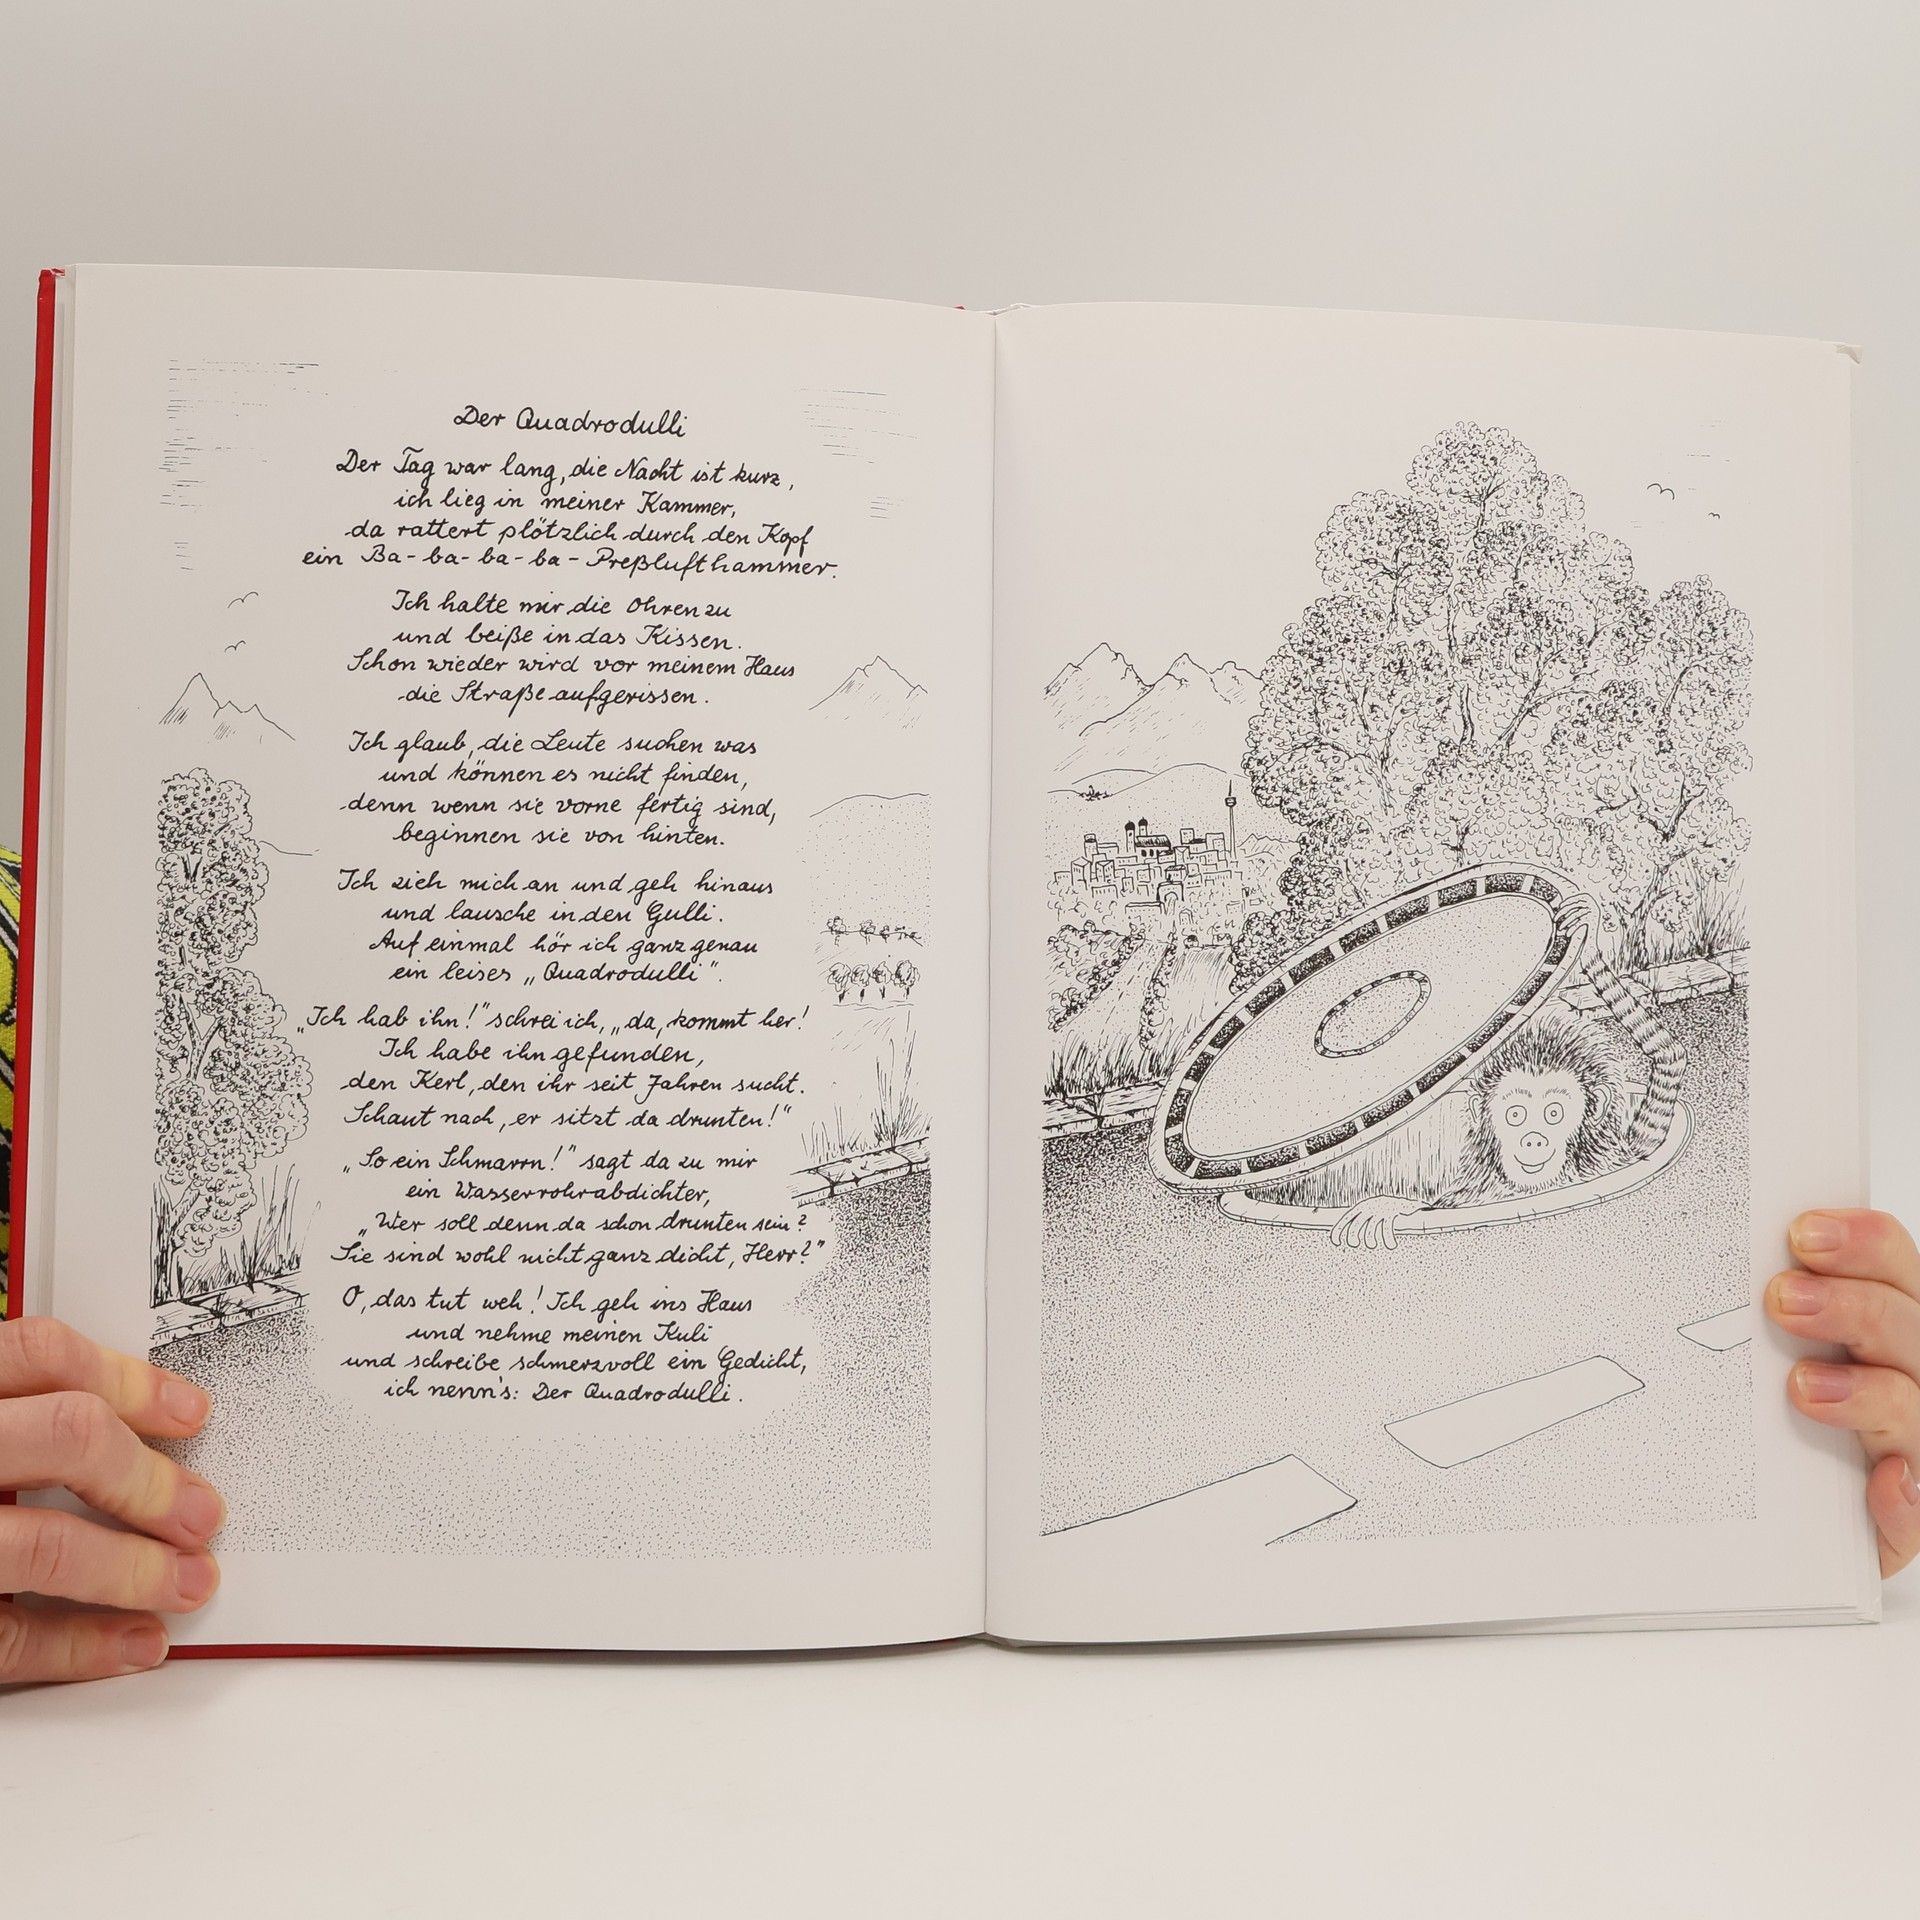 Der Quadrodulli
Der Tag war lang, die Nacht ist kurz,
ich lieg in meiner Kammer,
da rattert plötzlich durch den Kopf
ein Ba-ba-ba-ba-Preßlufthammer.
Ich halte mir die Ohren zu
und beiße in das Kissen.
Schon wieder wird vor meinem Haus
die Straße aufgerissen.
Ich glaub, die Leute suchen was
und können es nicht finden,
denn wenn sie vorne fertig sind,
beginnen sie von hinten.
Ich zieh mich an und geh hinaus
und lausche in den Gulli.
Auf einmal hör ich ganz genau
ein leises „Quadrodulli".
„Ich hab ihn!" schrei ich, „da, kommt her!
Ich habe ihn gefunden,
den Kerl, den ihr seit Jahren sucht.
Schaut nach, er sitzt da drunten!"
„So ein Schmarrn!" sagt da zu mir
ein Wasserrohrabdichter,
„Wer soll denn da schon drunten sein?
Sie sind wohl nicht ganz dicht, Herr?"
O, das tut weh! Ich geh ins Haus
und nehme meinen Kuli
und schreibe schmerzvoll ein Gedicht,
ich nenn's: Der Quadrodulli.